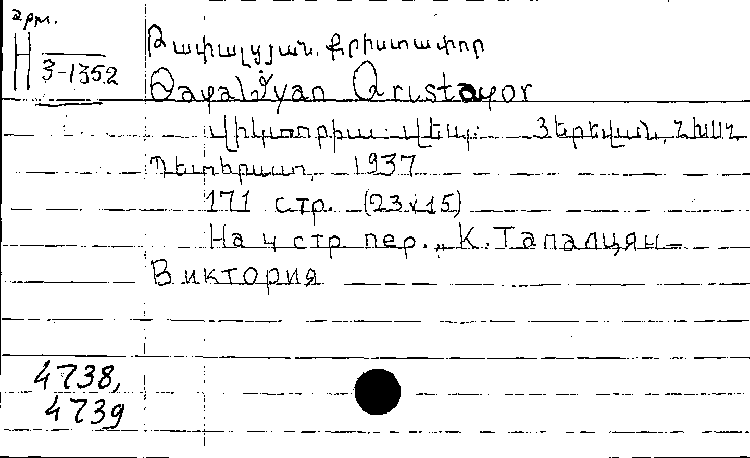 Арм.
H
3-1352
Թափալցյան. Քրիստափոր
Вիկտորիա. Վեպ: Յերեվան, ՀԽՍՀ
Պետհրատ, 1937
171 стр. (23x15)
На 4 стр пер.,, К. Тапалцян-
Виктория
4738,
4739